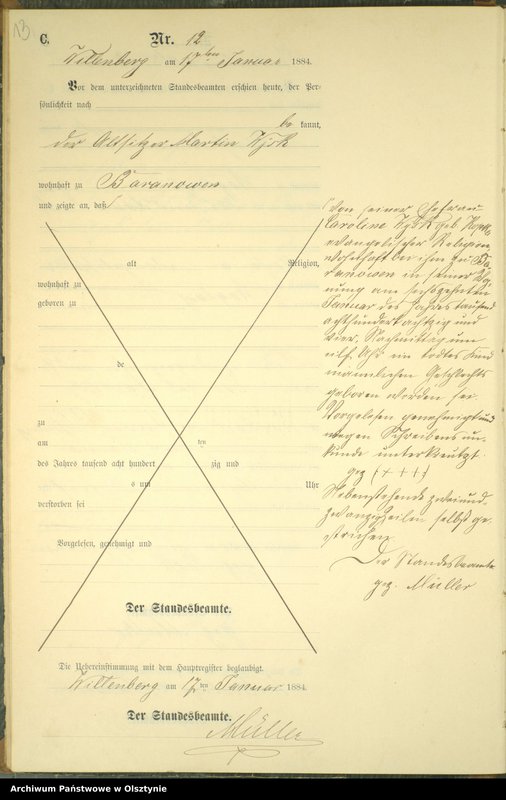 13
C.
Nr. 12
Willenberg am 17ten Januar 1884.
Vor dem unterzeichneten Standesbeamten erschien heute, der Per-
sönlichkeit nach
be kannt,
der Altsitzer Martin
wohnhaft zu Baranowen
und zeigte an, daß
alt Religion,
wohnhaft zu
geboren zu
de
zu
am ten
des Jahres tausend acht hundert zig und
s um Uhr
verstorben sei
Vorgelesen, genehmigt und
Der Standesbeamte.
Die Uebereinstimmung mit dem Hauptregister beglaubigt.
Willenberg am 17ten Januar 1884.
Der Standesbeamte.
Müller
von seiner Ehefrau
Caroline geb.
evangelischer Religion
wohnhaft bei ihm zu Ba-
ranowen in seiner Woh-
nung am sechszehnten
Januar des Jahres tausend
achthundert achtzig und
vier, Nachmittag um
elf Uhr ein todtes Kind
männlichen Geschlechts
geboren worden sei.
Vorgelesen genehmigt und
wegen Schreibensun-
kunde unterkreuzt.
gez. (+++)
Nebenstehende zweiund-
zwanzig Zeilen selbst ge-
strichen.
Der Standesbeamte
gez. Müller
Archiwum Państwowe w Olsztynie